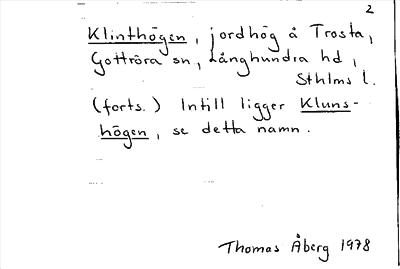 2
Klinthögen, jordhög å Trosta,
Gottröra sn, Långhundra hd,
Sthlms l.
(forts.) Intill ligger Kluns-
högen, se detta namn.
Thomas Åberg 1978